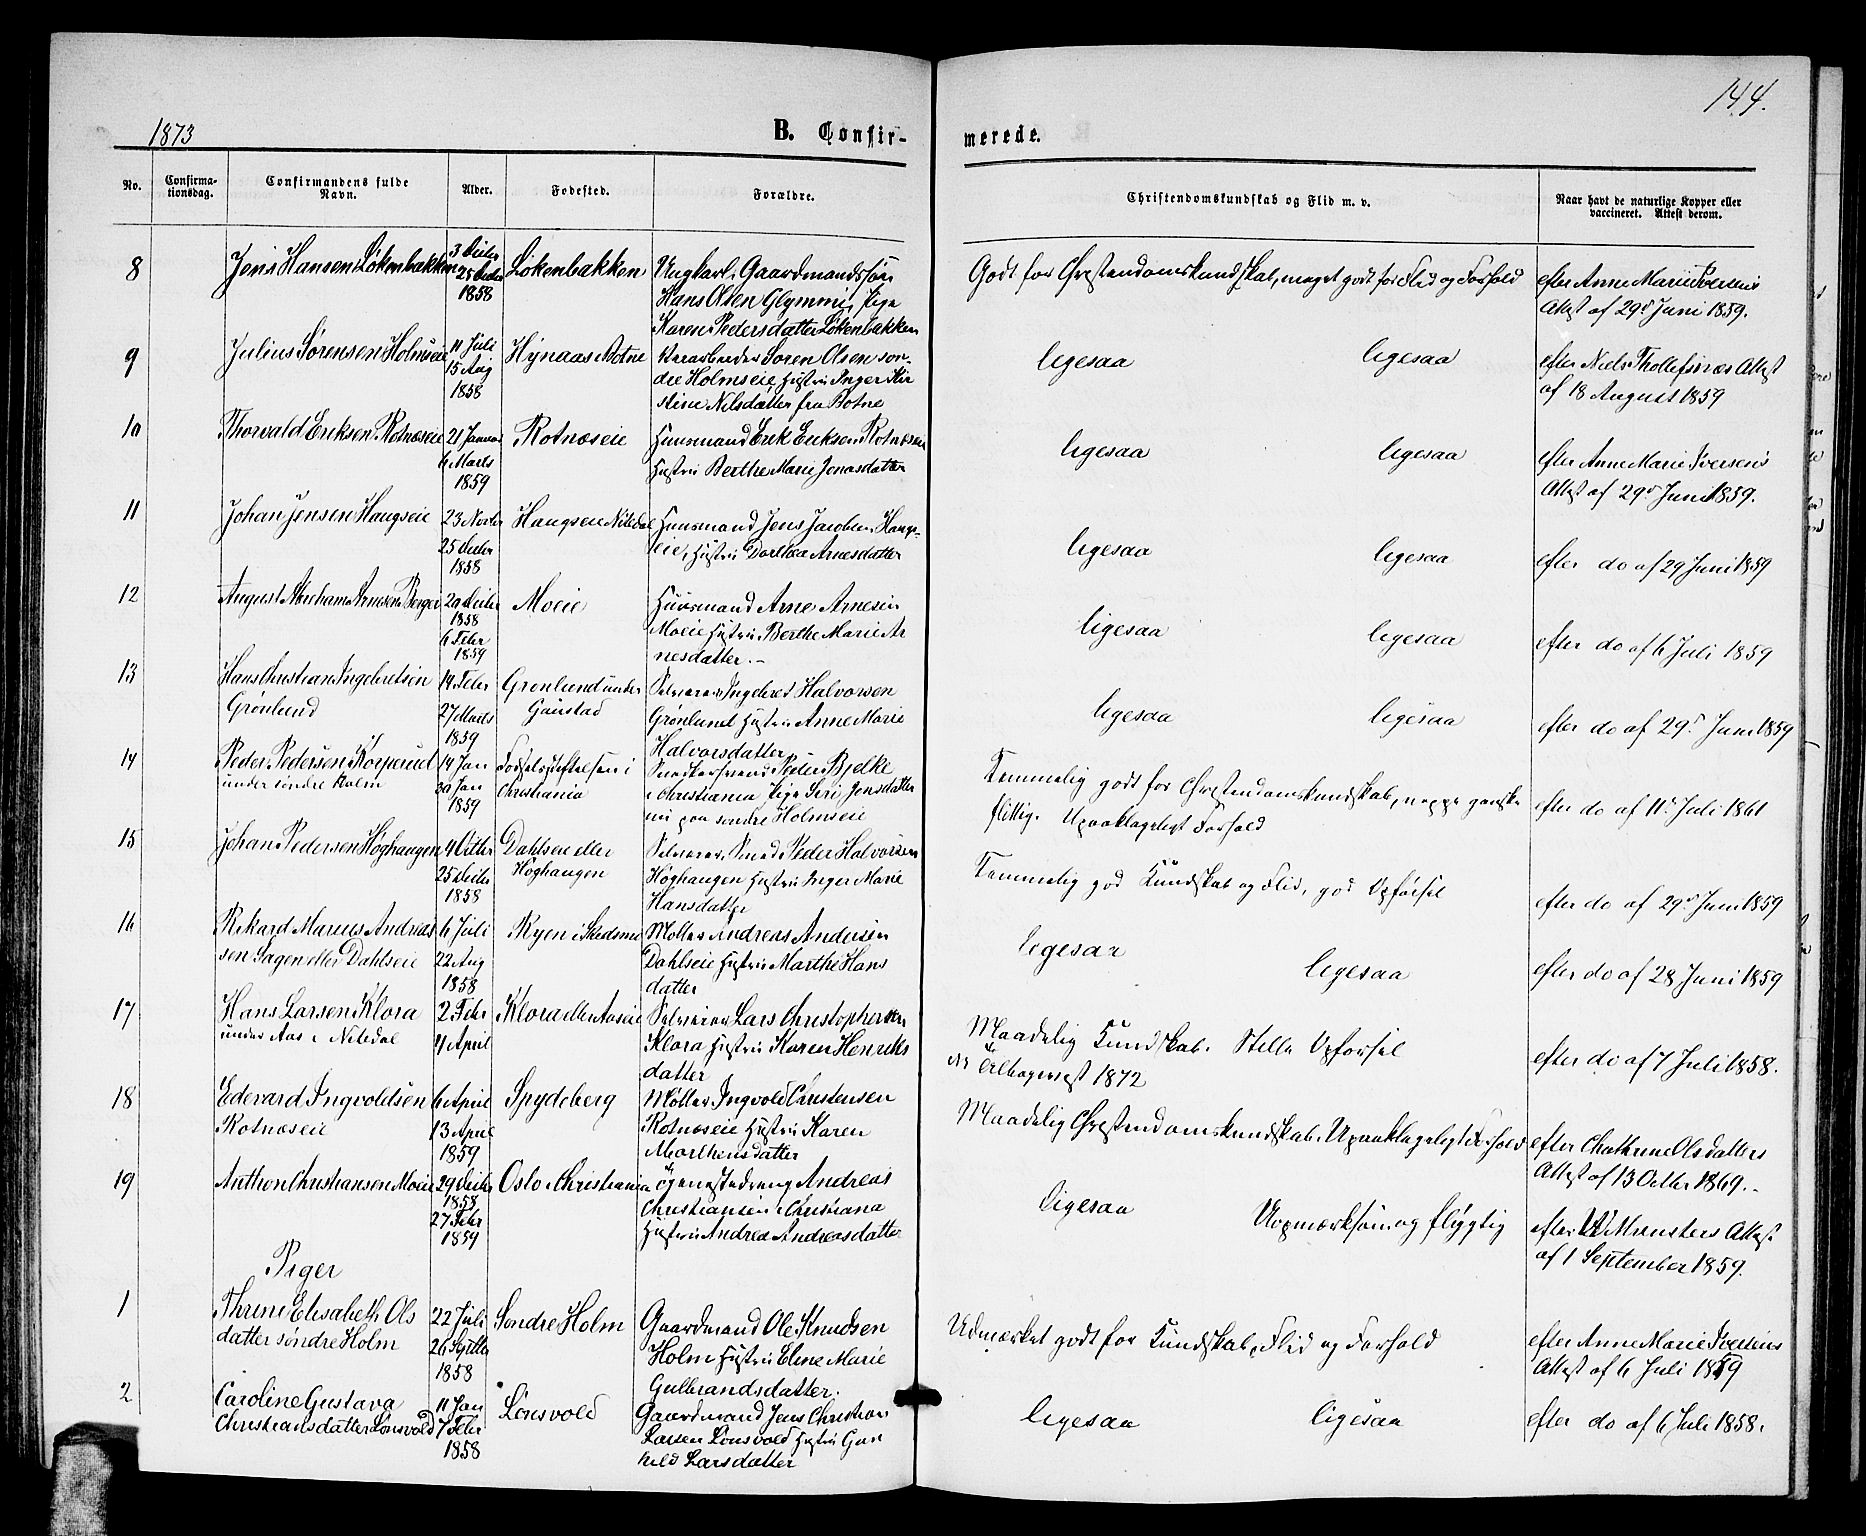 144.
1873
B. Confir-
merede.
No.
Confirma-
tionsdag.
Confirmandens fulde
Navn.
Alder.
Fødested.
Forældre.
Christendomskundskab og Flid m. v.
Naar havt de naturlige Kopper eller
vaccineret. Attest derom.
8
Jens Hansen Løkenbakken
3 Decbr
25 Decbr
1858
Løkenbakken
Ungkarl, Gaardmandssøn
Hans Olsen Glymmi, Pige
Karen Pedersdatter Løkenbakken
Godt for Christendomskundskab, meget godt for Flid og Forhold
efter Anne Marie Iversens
Attest af 29d Juni 1859.
9
Julius Sørensen Holmseie
11 Juli
15 Aug
1858
Hynaas Botne
Søren Olsen søn-
dre Holmseie, Hustru Inger Kir
stine Nilsdatter fra Botne
ligesaa
ligesaa
efter Niels Thollefsnæs Attest
af 18 August 1859
10
Thorvald Eriksen Rotnæseie
21 Januar
6 Marts
1859
Rotnæseie
Huusmand Erik Eriksen Rotnæseie
Hustru Berthe Marie Jonasdatter
ligesaa
ligesaa
efter Anne Marie Iversens
Attest af 29d Juni 1859.
11
Johan Jensen Haugseie
23 Novbr
25 Decbr
1858
Haugseie Nitedal
Huusmand Jens Jacobsen Haugs-
eie, Hustru Dorthea Arnesdatter
ligesaa
ligesaa
efter do af 29 Juni 1859
12
August Abraham Arnesen Berger
20 Decbr
1858
6 Febr
1859
Moeie
Huusmand Arne Arnesen
Moeie Hustru Berthe Marie Ar
nesdatter.-
ligesaa
ligesaa
efter do af 6 Juli 1859
13
Hans Christian Ingebretsen
Grønlund
14 Febr
27 Marts
1859
Grønlund under
Gaustad
Selveier Ingebret Halvorsen
Grønlund Hustru Anne Marie
Halvorsdatter
ligesaa
ligesaa
efter do af 29d Juni 1859
14
Peder Pedersen Korperud
under søndre Holm
14 Jan
30 Jan
1859
Fødselsstiftelsen i
Christiania
Snedkersvend Peder Bjelke
i Christiania Pige Siri Jensdatter
nu paa søndre Holmseie
Temmelig godt for Christendomskundskab, neppe ganske
flittig. Upaaklageligt Forhold
efter do af 11d Juli 1861
15
Johan Pedersen Høghaugen
4 Octbr
25 Decbr
1858
Dahlseie eller
Høghaugen
Selveier, Smed Peder Halvorsen
Høghaugen Hustru Inger Marie
Hansdatter
Temmelig god Kundskab og Flid, god Opførsel
efter do af 29d Juni 1859
16
Rikard Marius Andreas
sen Sagen eller Dahlseie
6 Juli
22 Aug
1858
Ryen i Skedsmo
Møller Andreas Andersen
Dahlseie Hustru Marthe Hans
datter
ligesaa
ligesaa
efter do af 28 Juni 1859
17
Hans Larsen Klora
under Aas i Nitedal
2 Febr
4 April
Klora eller Aaseie
Selveier Lars Christophersen
Klora Hustru Karen Henriks
datter
Maadelig Kundskab. Stille Opførsel
er tilbagevist 1872
efter do af 7 Juli 1858.
18
Edevard Ingvoldsen
Rotnæseie
6 April
13 April
1859
Spydeberg
Møller Ingvold Christensen
Rotnæseie Hustru Karen
Marthensdatter
Maadelig Christendomskundskab. Upaaklageligt Forhold
efter Chathrine Olsdatters
Attest af 13 Octbr 1869.-
19
Anthon Christiansen Moeie
29 Decbr
1858
27 Febr
1859
Oslo i Christiania
Tjenestedreng Andreas
Christiansen i Christiania
Hustru Andrea Andreasdatter
ligesaa
Uopmærksom og flygtig
efter Munsters Attest
af 1 September 1859.
Piger
1
Thrine Elisabeth Ols
datter søndre Holm
22 Juli
26 Septbr
1858
Søndre Holm
Gaardmand Ole Knudsen
Holm Hustru Eline Marie
Gulbrandsdatter.
Udmærket godt for Kundskab, Flid og Forhold
efter Anne Marie Iversens
Attest af 6 Juli 1859
2
Caroline Gustava
Christiansdatter Lønsvold
11 Jan
7 Febr
1858
Lønsvold
Gaardmand Jens Christian
Larsen Lønsvold Hustru Gun
hild Larsdatter
ligesaa
ligesaa
efter do af 6 Juli 1858.